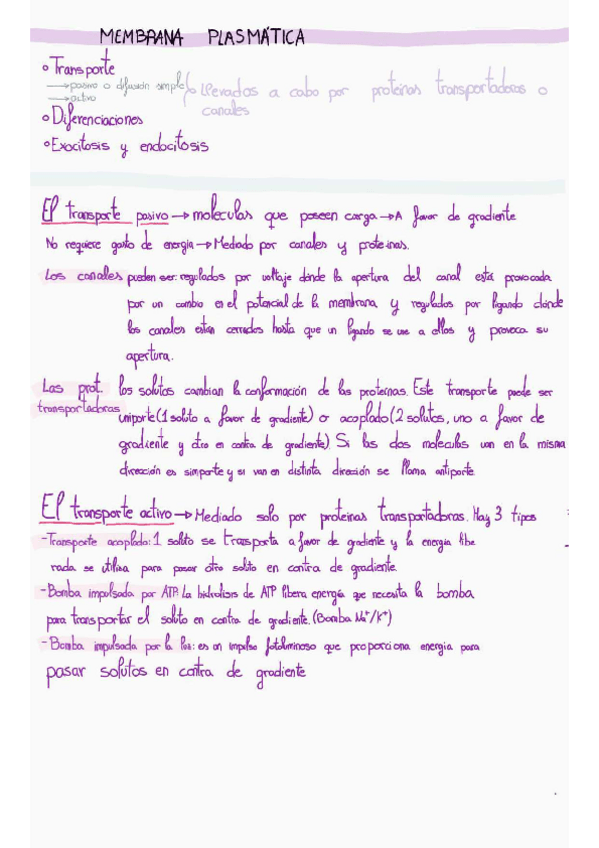 MEMBRANA PLASMÁTICA
Transporte
→ pasivo o difusión simple
→ activo
Llevados a cabo por proteinas transportadoras o
canales
Diferenciaciones
Exocitosis y endocitosis
El transporte pasivo → moleculas que poseen carga → A favor de gradiente
No requiere gasto de energia → Mediado por canales y proteinas.
Los canales pueden ser: regulados por voltaje donde la apertura del canal está provocada
por un cambio en el potencial de la membrana y regulados por ligando donde
los canales estan cerrados hasta que un ligando se une a ellos y provoca su
apertura.
Las prot. los solutos cambian la conformación de las proteinas. Este transporte puede ser
transportadoras uniporte (1 soluto a favor de gradiente) o acoplado (2 solutos, uno a favor de
gradiente y otro en contra de gradiente). Si las dos moleculas van en la misma
dirección es simporte y si van en distinta dirección se llama antiporte.
El transporte activo → Mediado solo por proteinas transportadoras. Hay 3 tipos
- Transporte acoplado: 1 soluto se transporta a favor de gradiente y la energia libe
rada se utiliza para pasar otro soluto en contra de gradiente
- Bomba impulsada por ATP. La hidrolisis de ATP libera energía que necesita la bomba
para transportar el soluto en contra de gradiente. (Bomba Na⁺/K⁺)
- Bomba impulsada por la luz: es un impulso fotoluminoso que proporciona energia para
pasar solutos en contra de gradiente